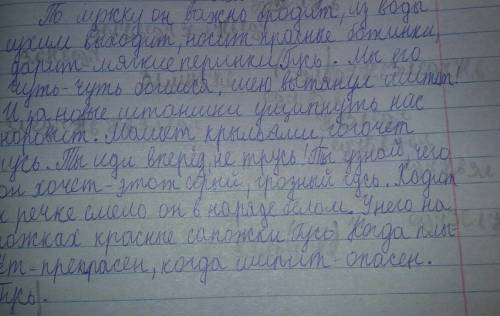 По лужку он важно бродит, из воды
сухим выходит, носит красные ботинки,
дарит мягкие перинки. (Гусь). Мы его
чуть-чуть боимся, шею вытянул шипит!
И за новые штанишки ущипнуть нас
норовит. Машет крыльями, гогочет
гусь. Ты иди вперёд, не трусь! Ты узнай, чего
он хочет - этот серый, грозный гусь. Ходит
к речке смело он в наряде белом. У него на
ножках красные сапожки (Гусь). Когда плы-
вёт - прекрасен, когда шипит - опасен.
(Гусь).